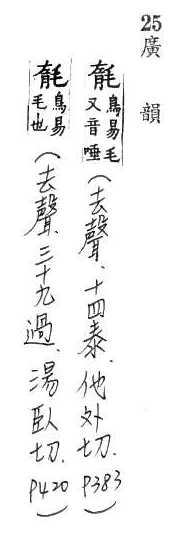 25 廣韻
毻 鳥易毛又音唾（去聲、十四泰、他外切. P383）
毻 鳥易毛也（去聲、三十九過、湯臥切. P420）